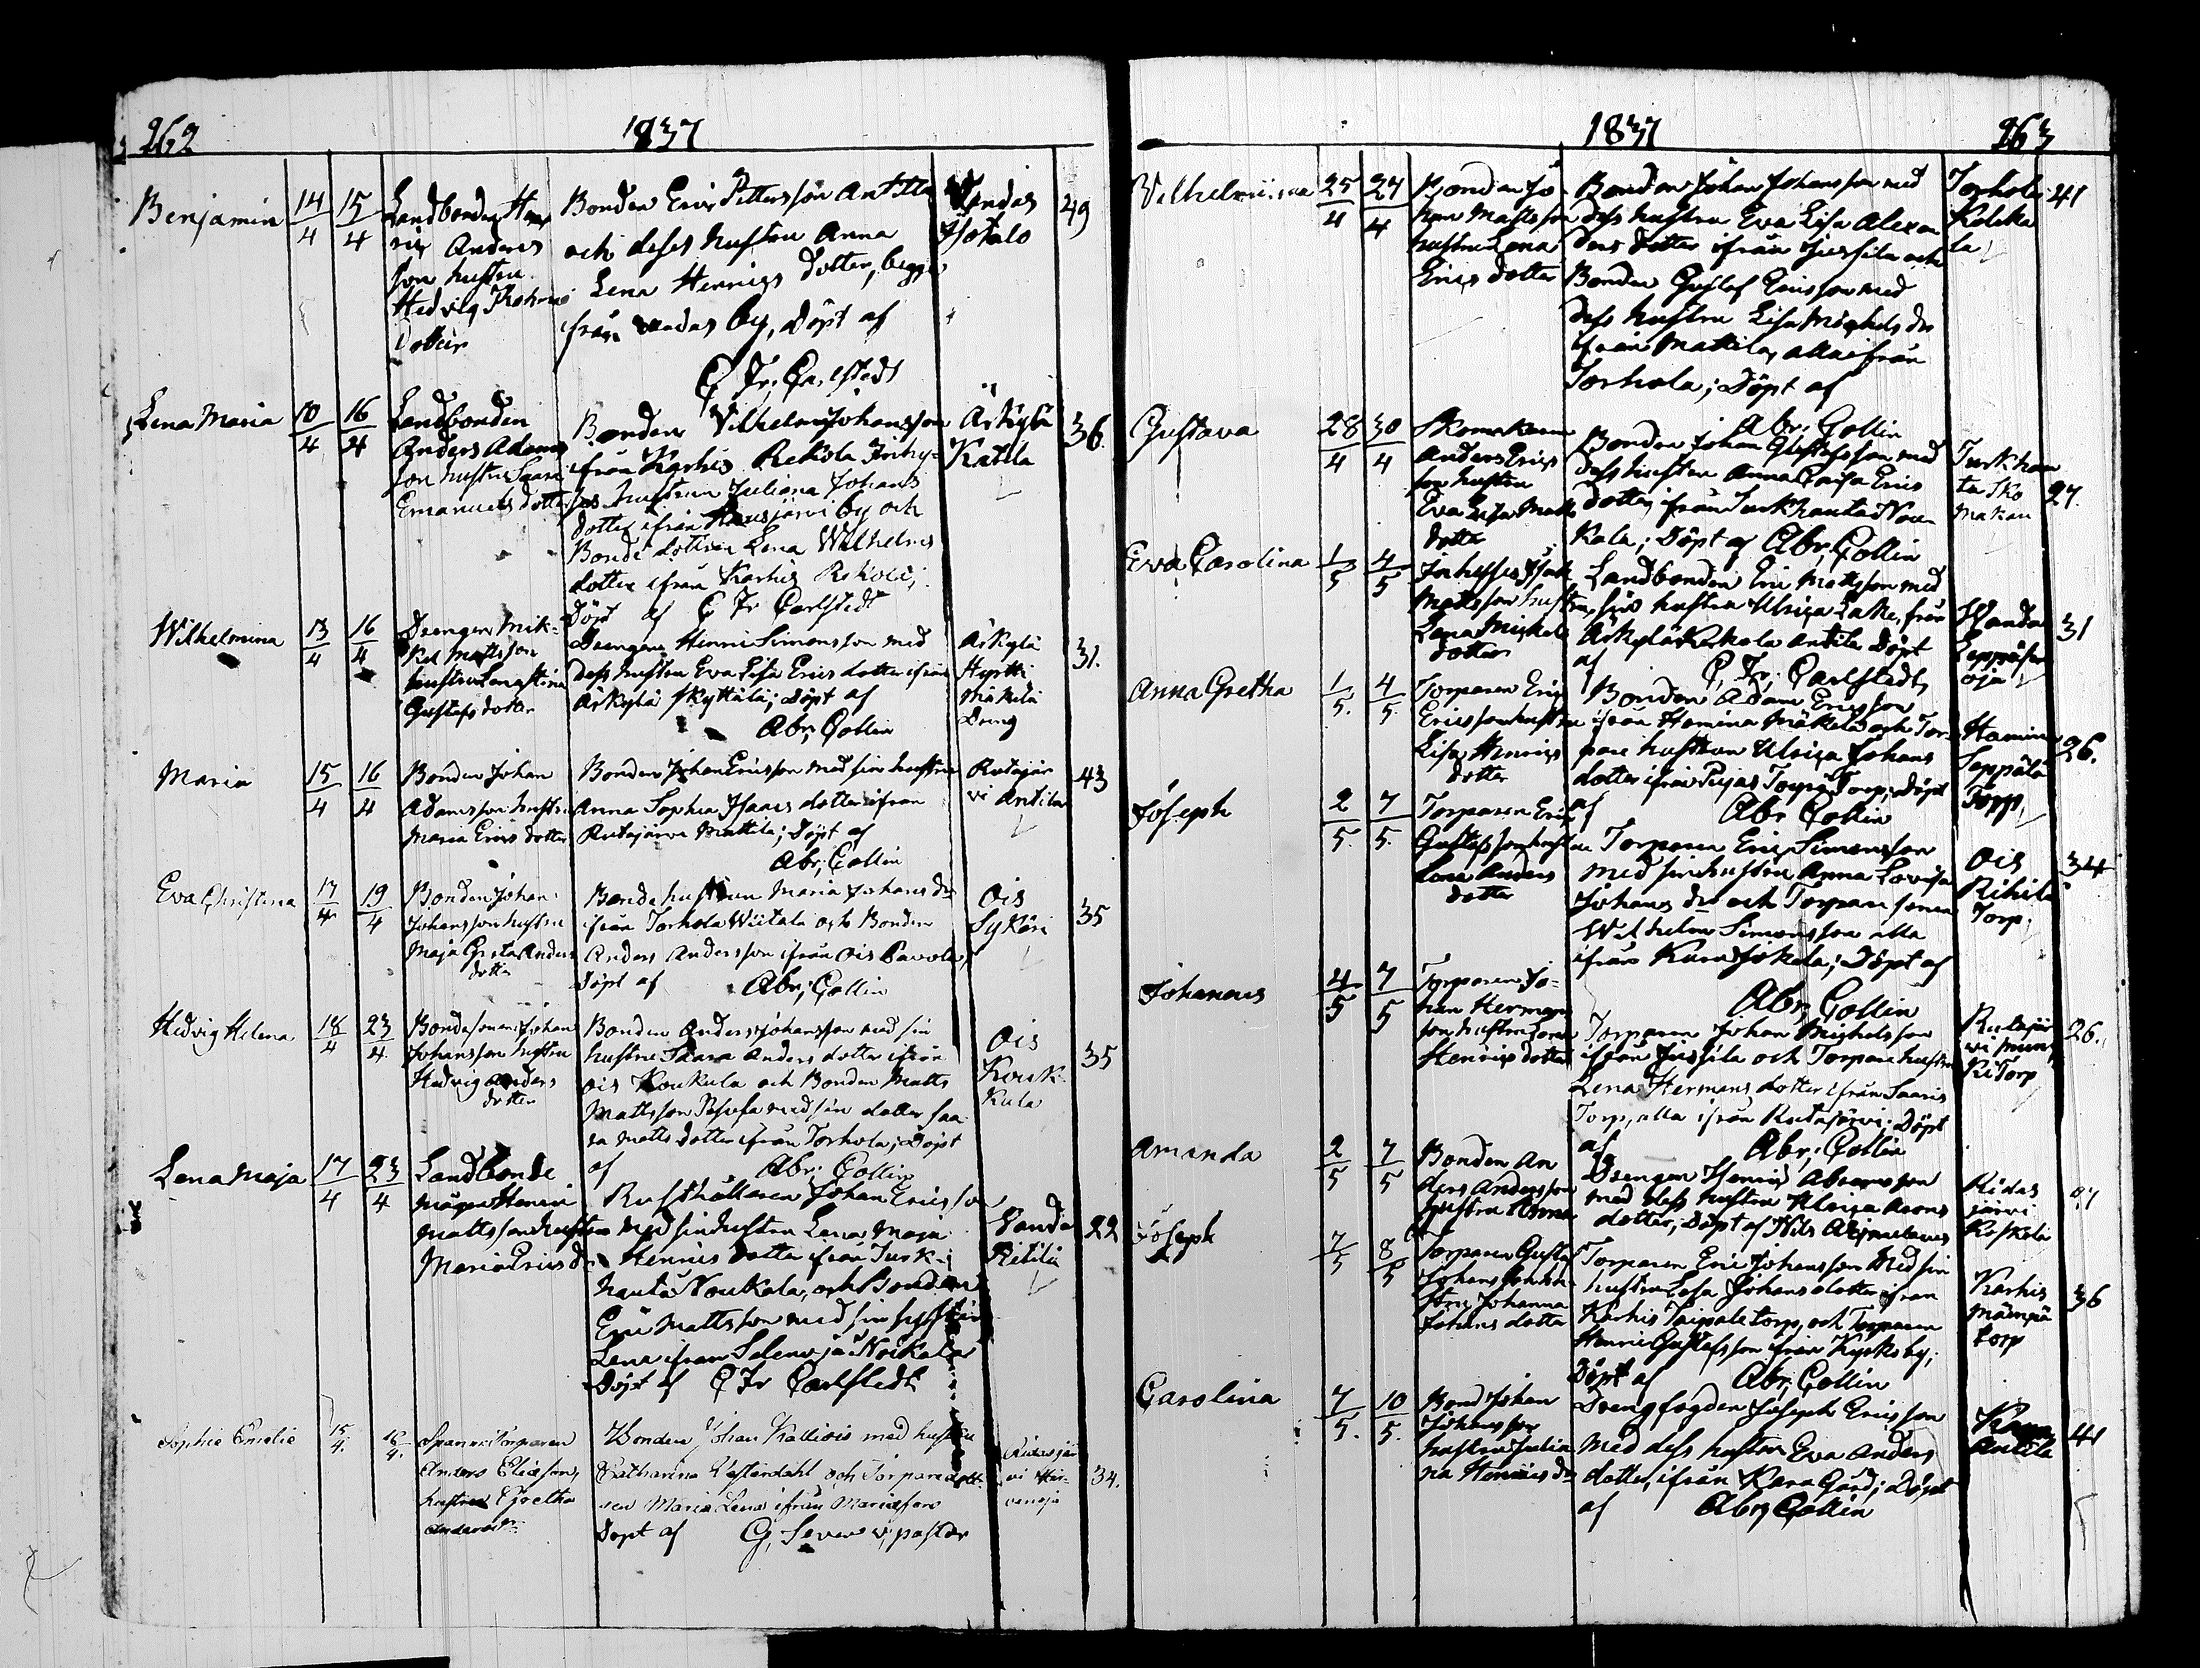 262 1837
Benjamin 14/4 15/4 Landbonden Hen Bonden Eric Pettersson Anttila Vendas 49
ric Anders och dess hustru Anna Hotalo
son hustru Lena Henrics dotter, begge
Hedvig ifrån Vendas by, Döpt af
dotter C Fr; Carlstedt
Lena Maria 10/4 16/4 Landbonden Bonden Vilhelm Johansson Äskylä 36.
Anders Adams ifrån Karhis Rekola Katila
son hustru Saara hustrun Juliana Johans
Emanuels dotter dotter ifrån by och
Bonde dottren Lena Wilhelms
dotter ifrån Karhis Rekola;
Döpt af C Fr Carlstedt
Wilhelmina 13/4 16/4 Drengen Mik- Drengen Henric Simonsson med Äskylä 31.
kel Mattsson dess hustru Eva Lisa Erics dotter ifrån Hyrtti
hustru Äskylä Skyttälä; Döpt af Mäkilä
Gustafs dotter Abr; Collin Dreng
Maria 15/4 16/4 Bonden Johan Bonden Johan Ericsson med sin hustru Rutajär 43
Adamsson hustru Anna Sophia Isaacs dotter ifrån vi Antila
Maria Erics dotter Rutajärvi Mattila; Döpt af
Abr; Collin
Eva Christina 17/4 19/4 Bonden Johan Bonde hustrun Maria Johans dr Ois 35
Johansson hustru ifrån Torhola Wiitala och Bonden Sykäri
Maja Greta Anders Anders Andersson ifrån Ois Pavola,
dotter Döpt af Abr; Collin
Hedvig Helena 18/4 23/4 Bondesonen Johan Bonden Anders Johansson med sin Ois 35
Johansson hustru hustru Saara Anders dotter ifrån Kouk-
Hedvig Anders Ois Koukula och Bonden Matts kula
dotter Mattsson med sin dotter Saa
ra Matts dotter ifrån Torhola; Döpt
af Abr; Collin
Lena Maja 17/4 23/4 Landbonde Rusthållaren Johan Ericsson Vanda 22
mågen Henric med sin hustru Lena Maja Rihilä
Mattsson hustru Henrics dotter ifrån Turk-
Maria Erics dr hauta Noukala, och Bonden
Eric Mattsson med sin
Lena ifrån Selensjä Noikala
Döpt af C Fr Carlstedt
Sophia Emelie 15/4. 18/4. Spannri Torparen Bonden Johan Kallioi med hustru 34.
Anders Eliasson, Catharina Vesterdahl och Torpare dott
hustru Gretha ren Maria Lena ifrån Mariefors
Anders dr Döpt af G. v; pastor
1837 263
Vilhelmina 25/4 27/4 Bonden Jo- Bonden Johan Johansson med Torhola 41
han Mattsson dess hustru Eva Lisa Alexan Kolkka
hustru Lena ders dotter ifrån Jussila och la
Erics dotter Bonden Gustaf Ericsson med
dess hustru Lisa Michels dr
ifrån Mattila, alla ifrån
Torhola; Döpt af
Abr; Collin
Gustava 28/4 30/4 Skomakaren Bonden Johan Gustafsson med Turkhau 27.
Anders Erics dess hustru Anna Caisa Erics ta Sko
son hustru dotter, ifrån Turkhauta Nou- makar
Eva Lisa Matts kala; Döpt af Abr; Collin
dotter
Eva Carolina 1/5 4/5 Inhyses Isak Landbonden Eric Mattsson med Wanda 31
Mattsson hustru sin hustru Ulrica Lake, från
Lena Michels Äskylä Kekola Antila Döpt oja
dotter af C, Fr; Carlstedt,
Anna Gretha 1/5. 4/5. Torparen Eric Bonden Adam Ericsson Hamina 26.
Ericsson hustru ifrån Hamina Mäkelä och Tor- Seppälä
Lisa Henrics pare hustrun Ulrica Johans Torp,
dotter dotter ifrån Torp; Döpt
af Abr Collin
Joseph 2/5. 7/5. Torparen Eric Torparen Eric Simonsson Ois 34
Gustafsson hustru med sin hustru Anna Lovisa Rihilä
Lena Anders Johans dr och Torpare sonen Torp;
dotter Wilhelm Simonsson alla
ifrån Jokela; Döpt af
Abr; Collin
Johannes 4/5 7/5 Torparen Jo- Torparen Johan Michelsson Rutajär 26.
han Hermans ifrån Jussila och Torpare hustru vi
son hustru Lena Lena Hermans dotter ifrån Saaris ki Torp
Henrics dotter Torp, alla ifrån Rutajärvi; Döpt
af Abr; Collin
Amanda 2/5 7/5 Bonden An Drengen Henric Abramsson Ridas
ders Andersson med dess hustru Ulrica Arons järvi
hustru Anna dotter; Döpt af Nils Koskela
Joseph 7/5 8/5 Torparen Gustaf Torparen Eric Johansson Med sin Karhis 36
Johansson hu- hustru Lisa Johans dotter ifrån Mämpä
stru Johanna Karhis Taipale torp, och Torparen torp
Johans dotter Henric Gustafsson ifrån Kyrkoby;
Döpt af Abr; Collin
Carolina 7/5. 10/5. Bond Johan Drengfogden Joseph Ericsson Kara 41
Johansson med dess hustru Eva Anders Antila
hustru Julia dotter, ifrån Kara Gård; Döpt
na Henrics dr af Abr; Collin